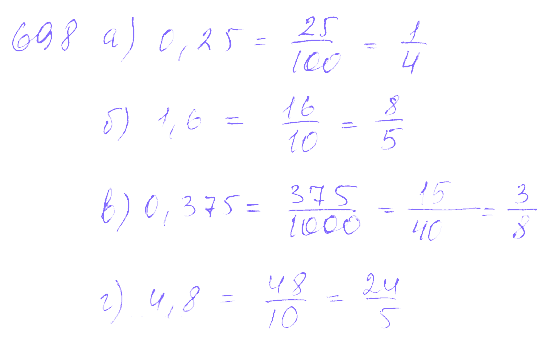 698 а) 0,25 = 25/100 = 1/4
б) 1,6 = 16/10 = 8/5
в) 0,375 = 375/1000 = 15/40 = 3/8
г) 4,8 = 48/10 = 24/5